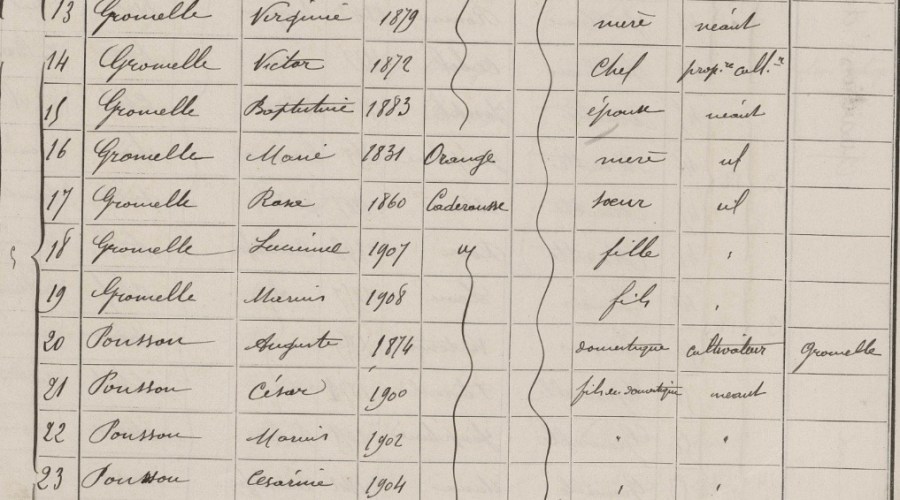 13 Gromelle Virginie 1879 mère néant
14 Gromelle Victor 1872 Chef prop.re cult.r
15 Gromelle Baptistine 1883 épouse néant
16 Gromelle Marie 1831 Orange mère id
17 Gromelle Rose 1860 Caderousse sœur id
18 Gromelle Lucienne 1907 id fille "
19 Gromelle Marius 1908 fils "
20 Pousson Auguste 1874 domestique cultivateur Gromelle
21 Pousson César 1900 fils du domestique néant
22 Pousson Marius 1902 " "
23 Pousson Césarine 1904 " "